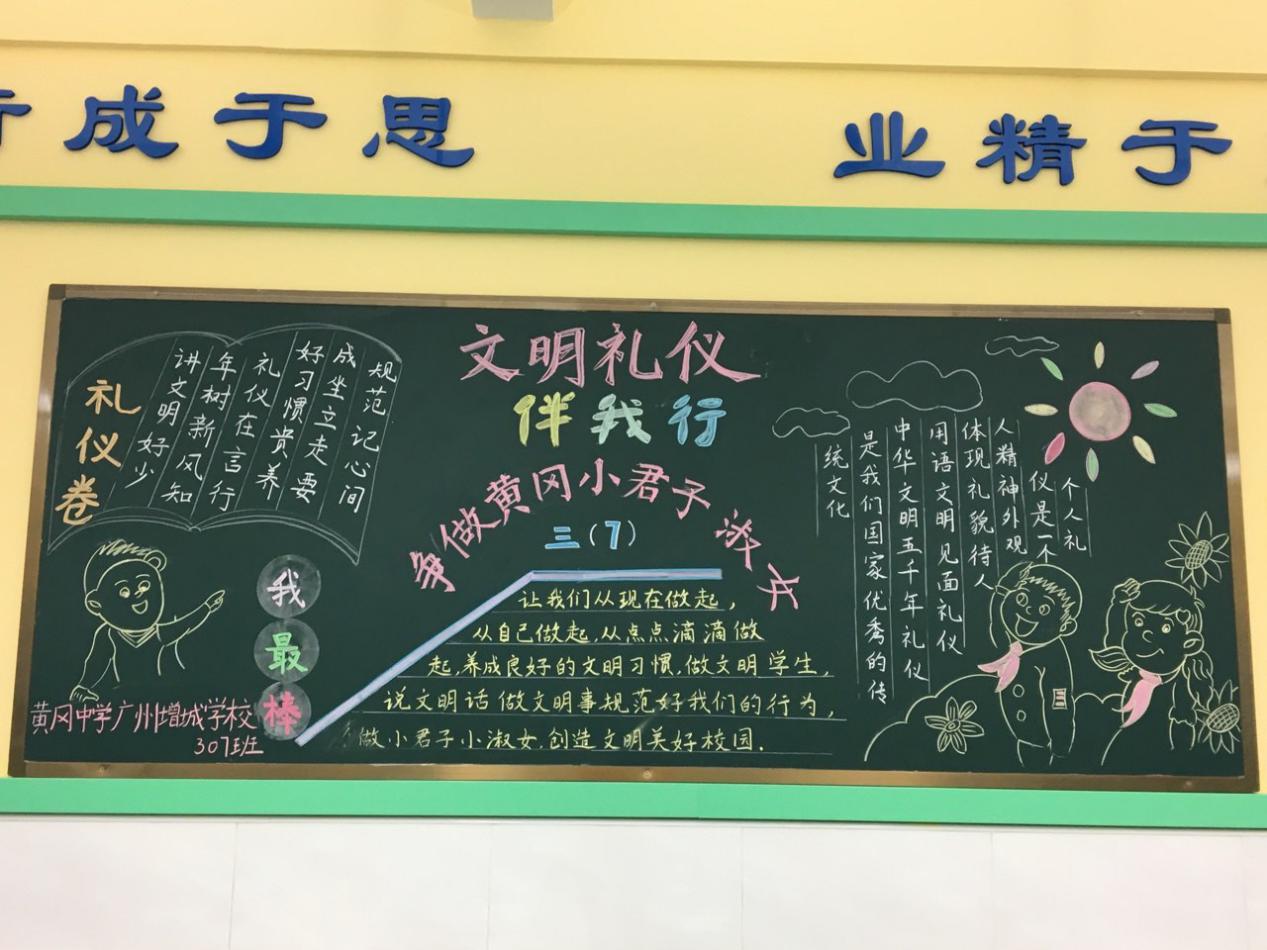 成于思
业精于
礼仪卷
讲文明好少
年树新风知
礼仪在言行
好习惯贵养
成坐立走要
规范记心间
我最棒
黄冈中学广州增城学校
307班
文明礼仪
伴我行
争做黄冈小君子淑女
三(7)
让我们从现在做起，
从自己做起,从点点滴滴做
起,养成良好的文明习惯,做文明学生,
说文明话做文明事规范好我们的行为，
做小君子小淑女,创造文明美好校园.
个人礼
仪是一个
人精神外观
体现礼貌待人
用语文明见面礼仪
中华文明五千年礼仪
是我们国家优秀的传
统文化